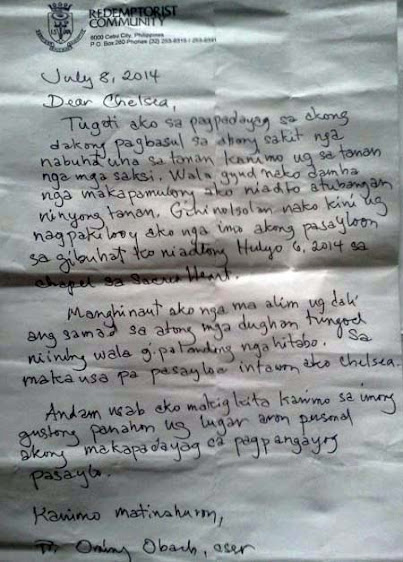 REDEMPTORIST
COMMUNITY
6000 Cebu City, Philippines
July 8, 2014
Dear Chelsea,
Tugoti ako sa pagpadayag sa akong
dakong pagbasul sa akong sakit nga
nabuhat una sa tanan kanimo ug sa tanan
nga mga saksi. Wala gyud nako damha
nga makapamulong ako niadto atubangan
ninyong tanan. Gihinolsolan nako kini ug
nagpakilooy ako nga imo akong pasayloon
sa gibuhat ko niadtong Hulyo 6, 2014 sa
chapel sa Sacred Heart.
Manghinaut ako nga ma alim ug dali
ang samad sa atong mga dughan tungod
niining wala gipalandong nga hitabo. Sa
makausa pa pasayloa intawon ako Chelsea.
Andam usab ako makigkita kanimo sa imong
gustong panahon ug lugar aron pusonal
akong makapadayag sa pagpangayog
pasaylo.
Kanimo matinahuron,
Obach, CSsR